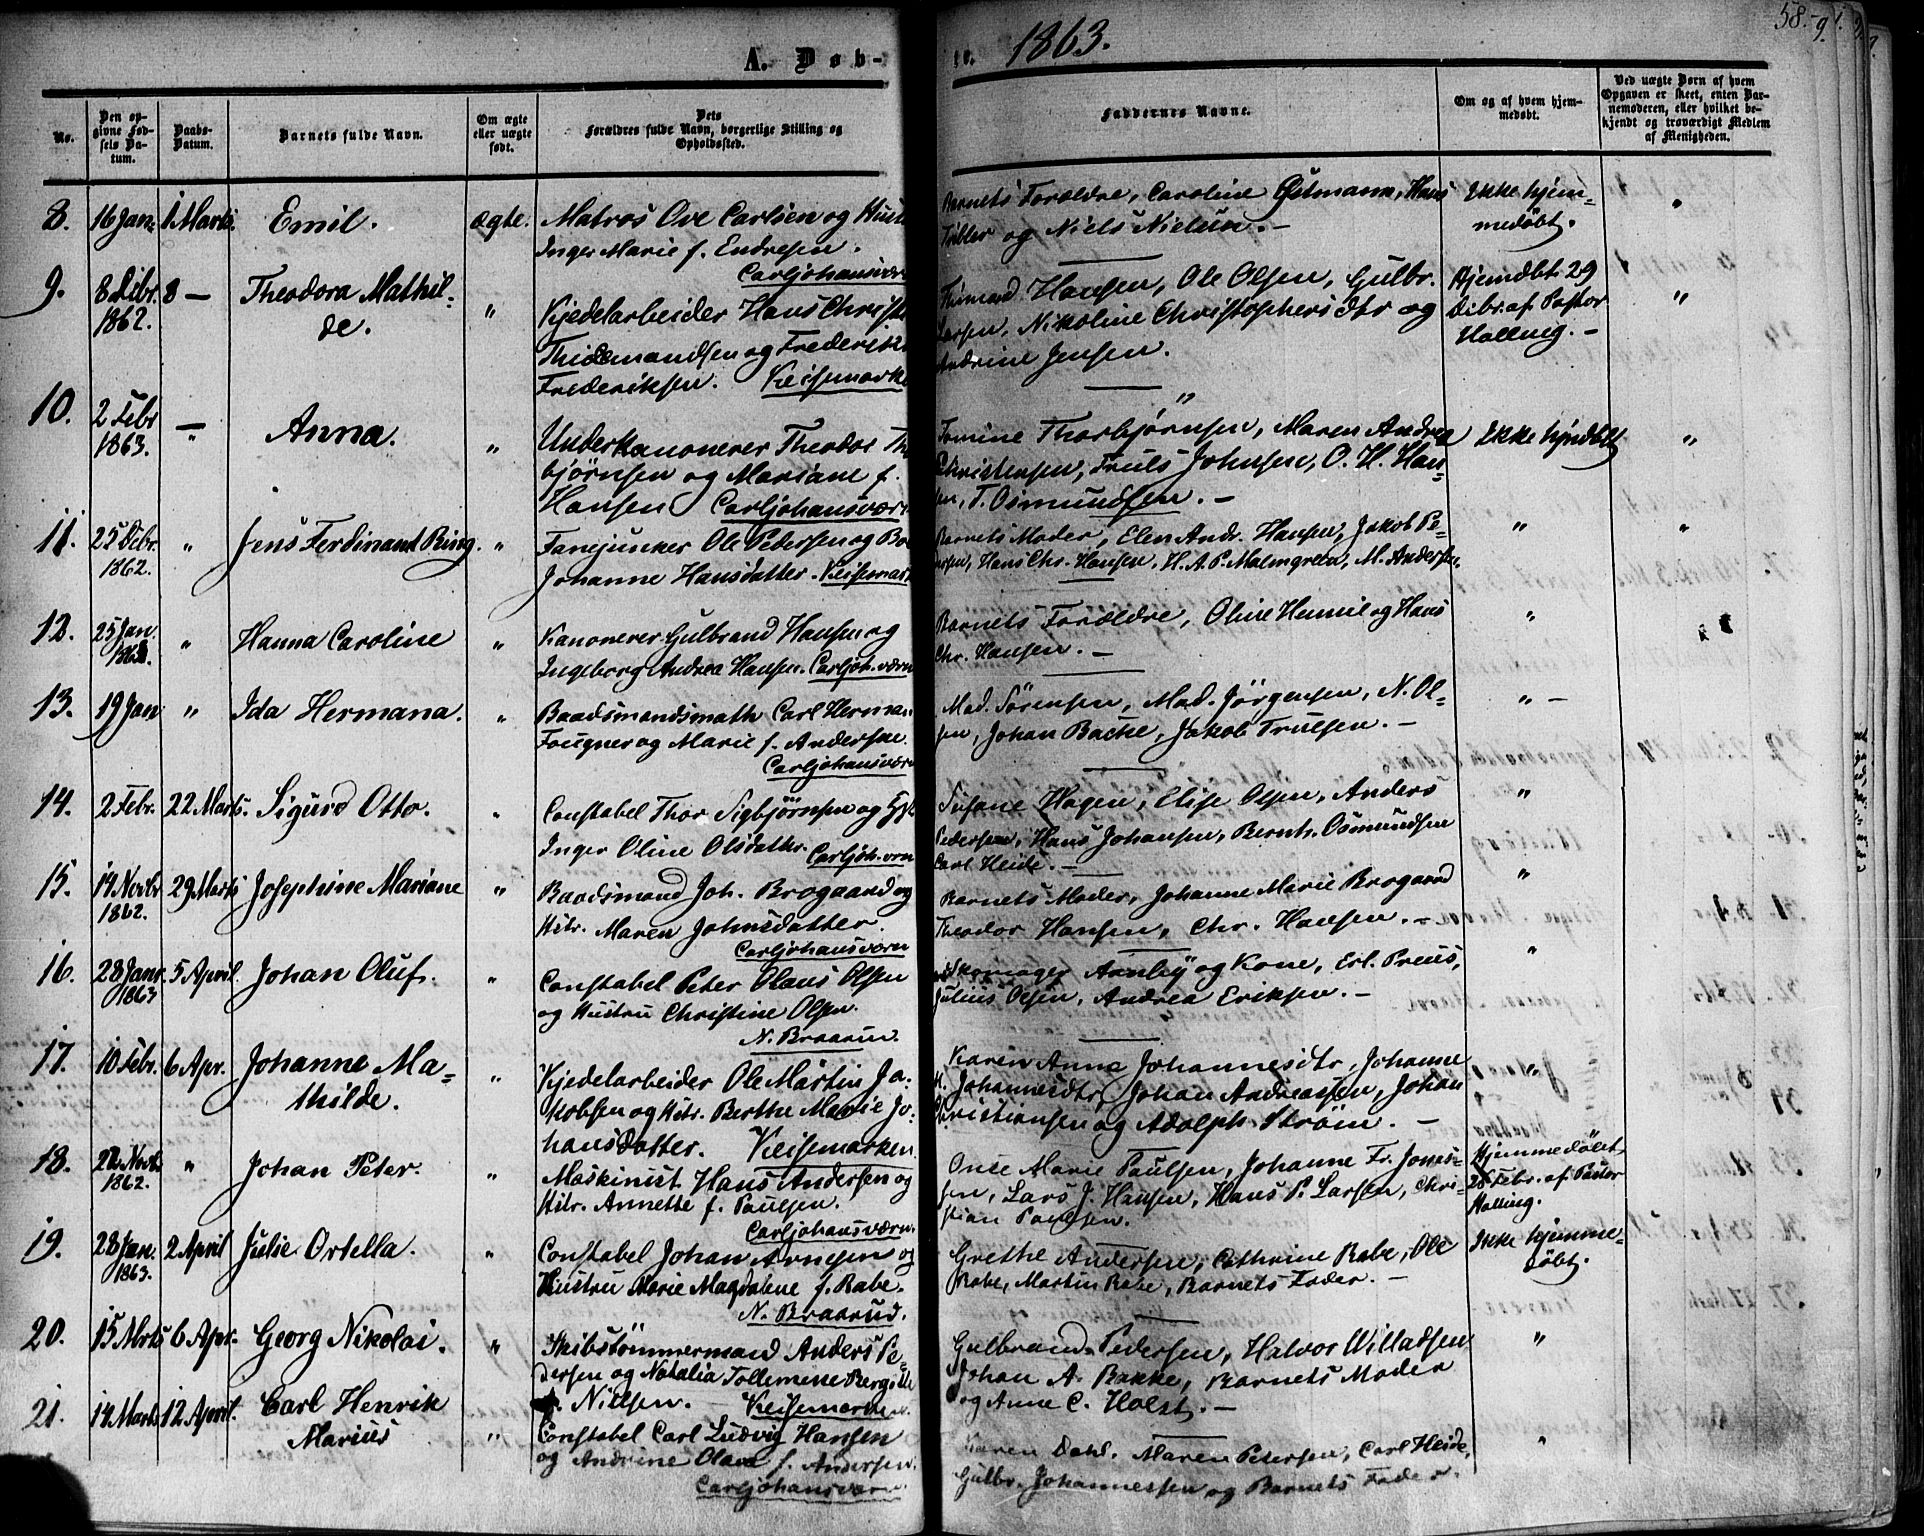 58.
A. Døb-
te. 1863.
No.
Den op-
givne Fød-
sels Da-
tum.
Daabs-
Datum.
Barnets fulde Navn.
Om ægte
eller uægte
født.
Dets
Forældres fulde Navn, borgerlige Stilling og
Opholdssted.
Faddernes Navne.
Om og af hvem hjem-
medøbt.
Ved uægte Børn af hvem
Opgaven er skeet, enten Bar-
nemoderen, eller hvilket be-
kjendt og troværdigt Medlem
af Menigheden.
8. 16 Jan. 1 Marts. Emil. ægte. Matros Ove Carlsen og Hustru
Inger Marie f. Endresen.
Carljohansværn
Barnets Forældre, Caroline Østmann, Hans
og Niels Nielsen. –
Ikke hjem-
medøbt. "
9. 8 Debr. 1862. 8 – Theodora Mathil-
de. " Kjedelarbeider Hans Christ
Thidemandsen og Frederik
Frederiksen. Keisemark
Hansen, Ole Olsen, Gulbr.
Larsen, Nikoline Christophersdtr og
Andrine Jensen.
Hjemdbt 29
Debr. af Pastor
Halling. – "
10. 2 Febr 1863. – " Anna. " Underkanonerer Theodor Th
bjørnsen og Mariane f.
Hansen Carljohansvær
"
Tomine Thorbjørnsen, Maren Andrea
Christensen, Truls Johnsen, O. H. Han-
sen, T. Osmundsen. –
Ikke hjmdbt "
11. 25 Debr. 1862. " Jens Ferdinant Ring. " Fanejunker Ole Pedersen og Bo
Johanne Hansdatter. Keisemark
Barnets Moder, Elen Andr. Hansen, Jakob Pe-
dersen, Hans Chr. Hansen, H. A. P. Malmgreen, M. Andersen.
" "
12. 25 Jan. 1863. " Hanna Caroline " Kanonerer Gulbrand Hansen og
Ingeborg Andrea Hansen. Carljoh. værn
Barnets Forældre, Oline Hemil og Hans
Chr. Hansen. –
"
13. 19 Jan " Ida Hermana. " Baadsmandsmath Carl Herman
Fougner og Marie f. Andersen.
Carljohansværn
Mad. Sörensen, Mad. Jörgensen, N. Ol-
sen, Johan Backe, Jakob Trulsen. –
" –
14. 2 Febr. 22 Marts. Sigurd Otto. " Constabel Thor Sigbjörnsen og
Inger Oline Olsdatter. Carljoh. vrn
Susane Hagen, Elise Olsen, Anders
Pedersen, Hans Johansen, Bernt. Osmundsen
Carl Heide. –
"
15. 14 Novbr 1862. 29 Marts Josephine Mariane " Baadsmand Joh. Brogaard og
Hstr. Maren Johnsdatter.
Carljohansværn
Barnets Moder, Johanne Marie Brogaard
Theodor Hansen, Chr. Hansen. –
"
16. 28 Janr 1863 5 April. Johan Oluf. " Constabel Peter Olaus Olsen
og Hustru Christine Olsen.
N. Braarud.
Skomager Aanby og Kone, Erl. Preus,
Julius Olsen, Andrea Eriksen. –
"
17. 10 Febr. 6 Apr. Johanne Ma-
thilde. " Kjedelarbeider Ole Martin Ja-
kobsen og Hstr. Berthe Marie Jo-
hansdatter. Keisemarken.
Karen Anna Johannesdtr, Johanne
M. Johannesdtr, Johan Andreassen, Johan
Christiansen og Adolph Ström. –
"
18. Novbr. 1862. " Johan Peter. " Maskinist Hans Andersen og
Hstr. Annette f. Paulsen.
Carljohansværn.
Marie Paulsen, Johanne Fr. Jones-
sen, Lars J. Hansen, Hans P. Larsen, Chri-
stian Paulsen.
Hjemmedöbt
28 Febr. af Pastor
Halling.
19. 28 Jan. 1863. 2 April Julie Ortella. " Constabel Johan Arnesen og
Hustru Marie Magdalene f. Rabe.
N. Braarud.
Grethe Andersen, Cathrine Rabe, Ole
Rabe, Martin Rabe, Barnets Fader. –
Ikke hjemme-
döbt.
20. 15 Mrts 6 Apr. Georg Nikolai. " Skibstömmermand Anders Pe-
dersen og Natalia Tollemine Bergitte
f. Nilsen. – Keisemarken.
Gulbrand Pedersen, Halvor Willadsen
Johan A. Bakke, Barnets Moder
og Anne C. Holst. –
"
21. 14 Marts 12 April. Carl Henrik
Marius " Constabel Carl Ludvig Hansen
og Andrine Olava f. Andersen.
Carljohansværn
Karen Dahl. Maren Petersen, Carl Heide,
Gulbr. Johannessen og Barnets Fader.
"